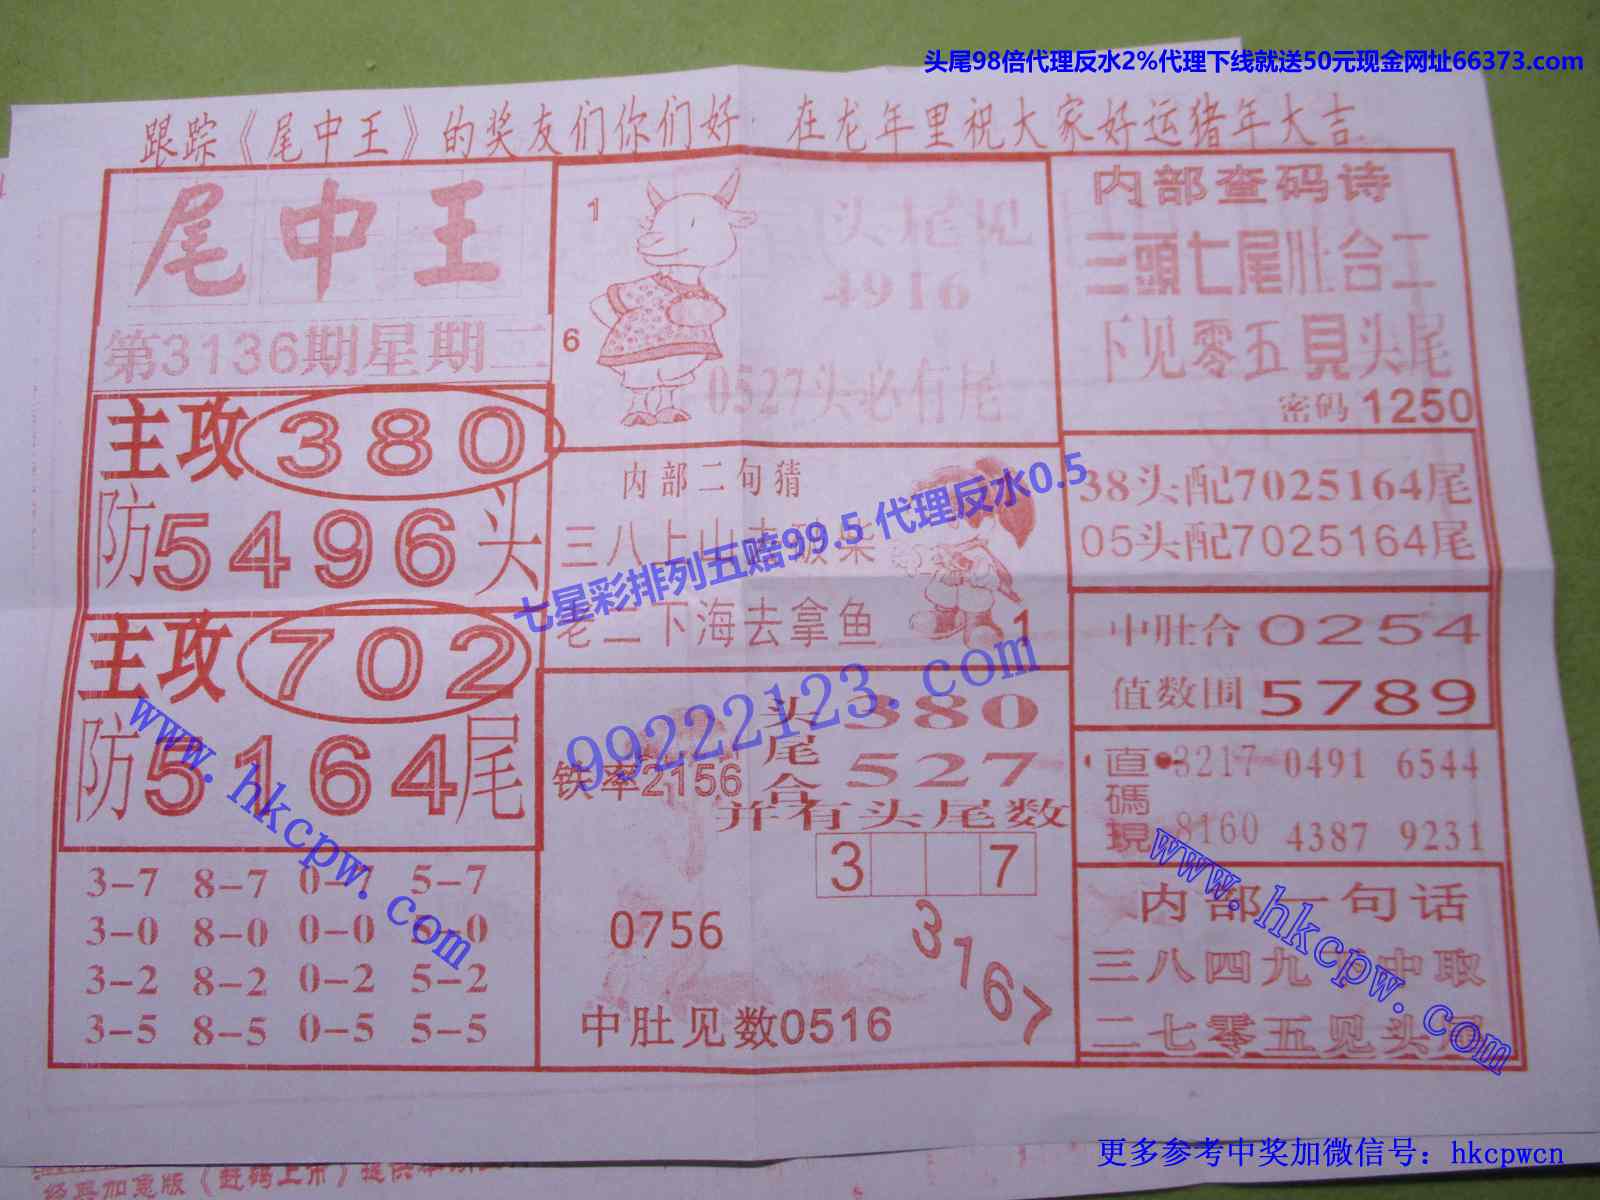 头尾98倍代理反水2%代理下线就送50元现金网址66373.com
跟踪《尾中王》的奖友们你们好 在龙年里祝大家好运猪年大吉
尾中王
第3136期星期二
主攻 380
防5496头
主攻 702
防5164尾
3-7 8-7 0-7 5-7
3-0 8-0 0-0 5-0
3-2 8-2 0-2 5-2
3-5 8-5 0-5 5-5
1
6
头尾见
4916
0527头必有尾
内部二句猜
三八上山去砍柴
老二下海去拿鱼
1
七星彩排列五赔99.5 代理反水0.5
99222123.com
铁率2156
头尾合
380
527
并有头尾数
3 7
0756
3167
中肚见数0516
内部查码诗
三頭七尾肚合二
下见零五見头尾
密码 1250
38头配7025164尾
05头配7025164尾
中肚合 0254
值数围 5789
直碼現
3217 0491 6544
8160 4387 9231
内部一句话
三八四九 中取
二七零五见头尾
www.hkcpw.com
www.hkcpw.com
更多参考中奖加微信号：hkcpwcn